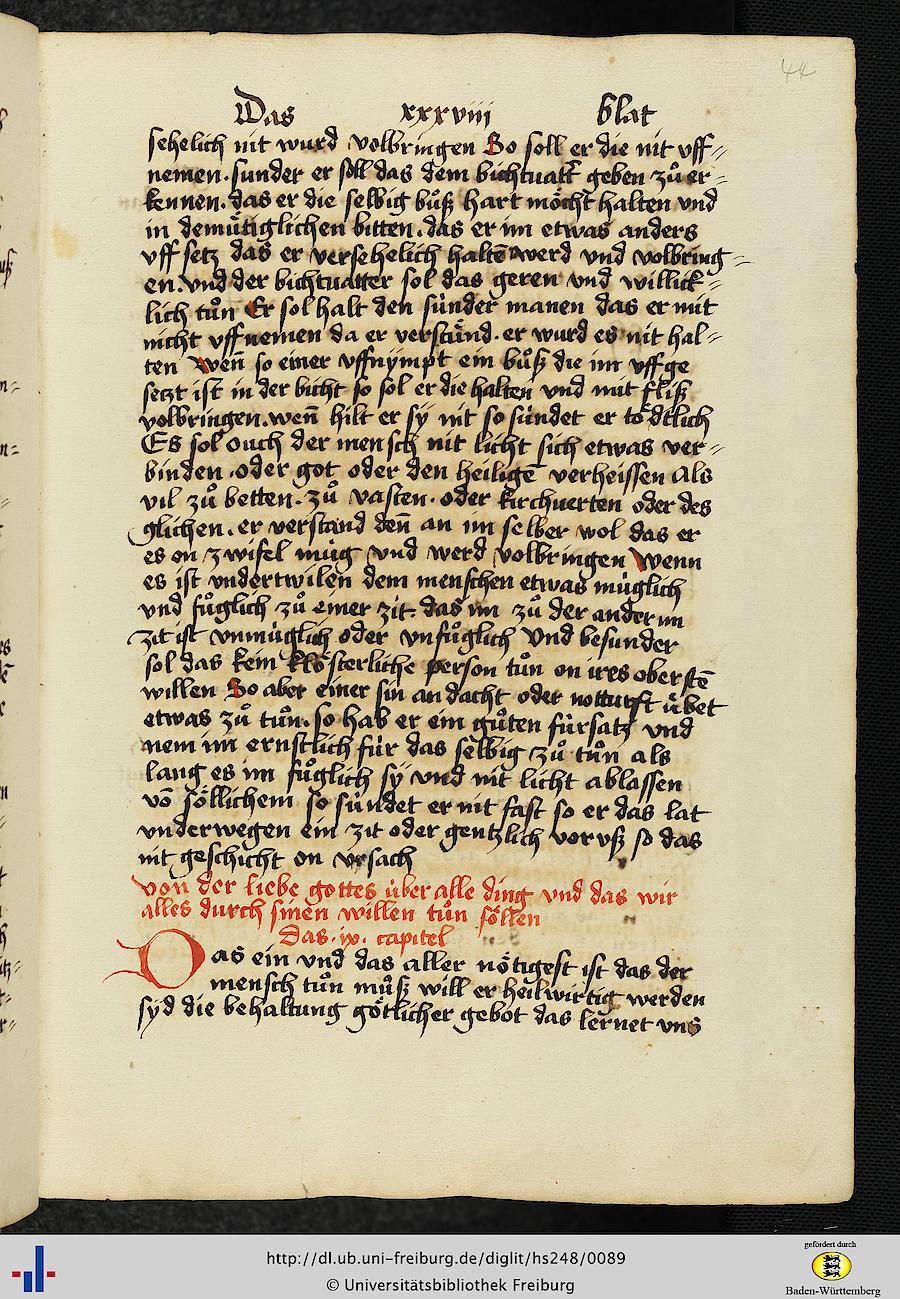 44
Das xxxviii blat
sehelich nit wurd volbringen So soll er die nit vff⸗
nemen. sunder er soll das dem bichtuatt̃ geben zuͦ er⸗
kennen. das er die selbig buͦß hart moͤcht halten vnd
in demuͤtiglichen bitten. das er im etwas anders
vff setz das er versehelich haltē werd vnd volbring⸗
en. vnd der bichtuatter sol das geren vnd willick⸗
lich tuͦn Er sol halt den sünder manen das er mit
nicht vff nemen da er verstuͤnd. er wurd es nit hal⸗
ten Wen̄ so einer vffnympt ein buͦß die im vff ge
setzt ist in der bicht so sol er die halten vnd mit fliß
volbringen. wen̄ hilt er sy nit so sündet er toͤdtlich
Es sol ouch der mensch nit licht sich etwas ver⸗
binden. oder got oder den heiligē verheissen als
vil zuͦ betten. zuͦ vasten. oder kirchuerten oder des
glichen. er verstand den̄ an im selber wol das er
es on zwifel müg vnd werd volbringen Wenn
es ist vndertwilen dem menschen etwas müglich
vnd fuͦglich zuͦ einer zit. das im zuͦ der andern
zit ist vnmüglich oder vnfuͦglich Vnd besunder
sol das kein kloͤsterliche person tuͦn on ires oberstē
willen So aber einer sin andacht oder notturft uͤbet
etwas zuͦ tuͦn. so hab er ein guͦten fürsatz vnd
nem im ernstlich für das selbig zuͦ tuͦn als
lang es im fuͦglich sy vnd nit licht ablassen
vō soͤllichem so sündet er nit fast so er das lat
vnderwegen ein zit oder gentzlich vor vß so das
nit geschicht on vrsach
von der liebe gottes über alle ding vnd das wir
alles durch sinen willen tuͦn soͤllen
Das. ix. capitel
Das ein vnd das aller noͤtigest ist das der
mensch tuͦn muͦß will er heilwirtig werden
syd die behaltung goͤtlicher gebot das lernet vns
http://dl.ub.uni-freiburg.de/diglit/hs248/0089
© Universitätsbibliothek Freiburg
gefördert durch
Baden-Württemberg